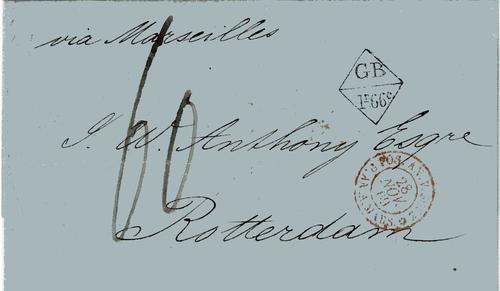 via Marseilles
GB
1F66c
60
J. W. Anthony Esqre
Rotterdam
28
NOV